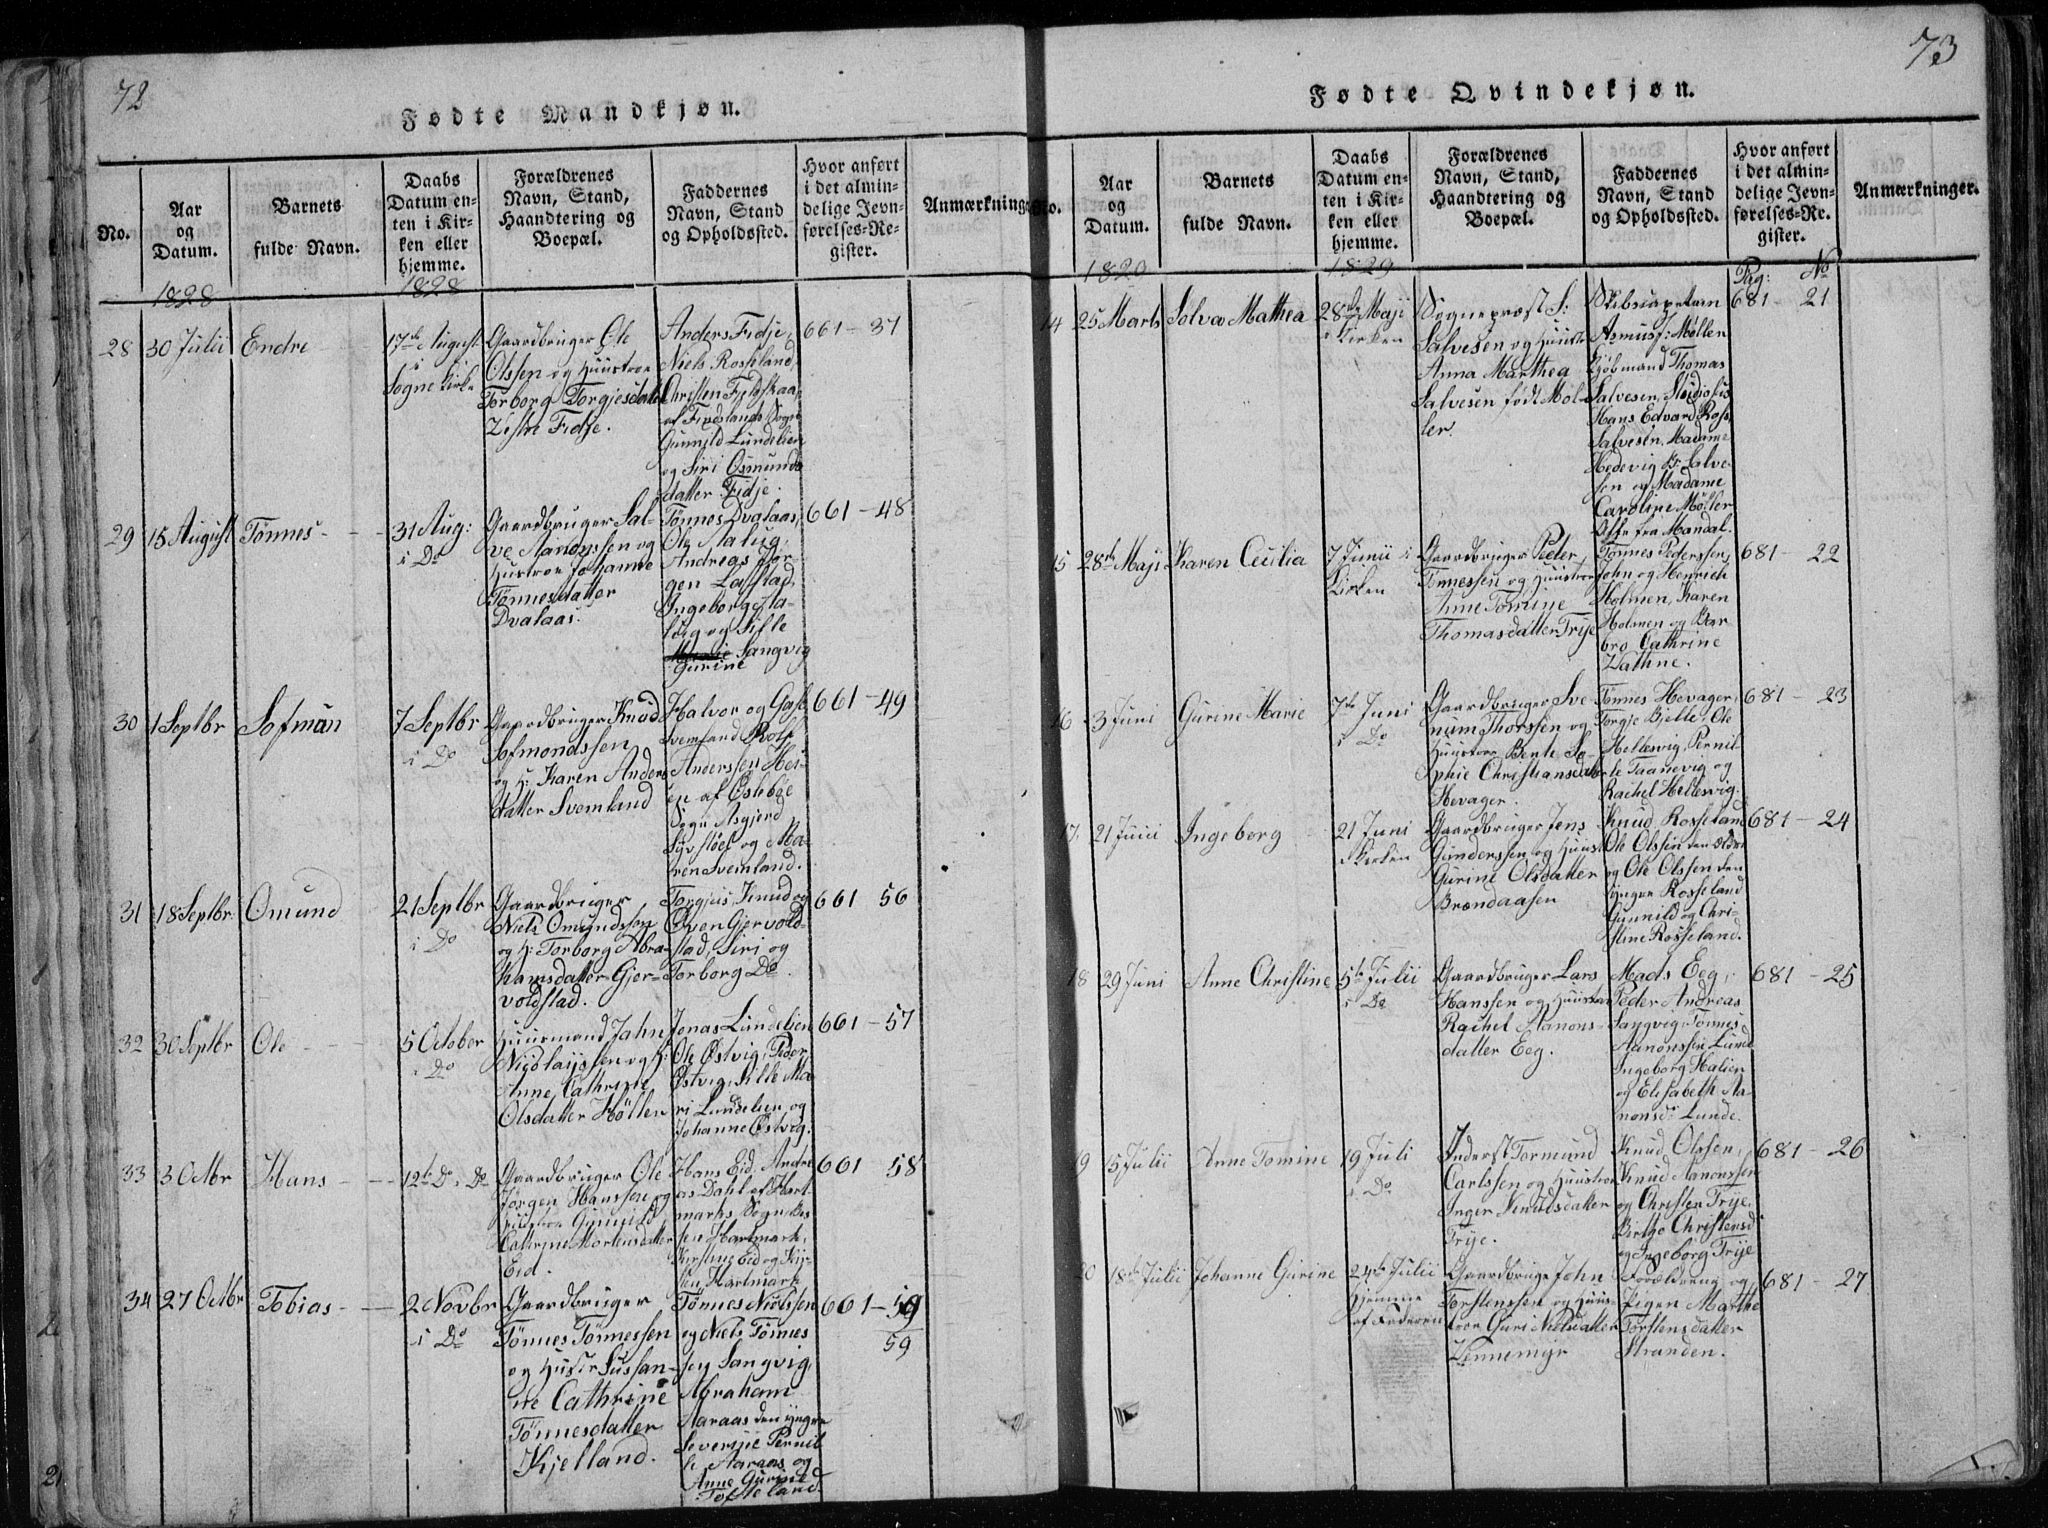 72
Fødte Mandkjøn.
No.
Aar
og
Datum.
Barnets
fulde Navn.
Daabs
Datum en-
ten i Kir-
ken eller
hjemme.
Forældrenes
Navn, Stand,
Haandtering og
Boepæl.
Faddernes
Navn, Stand
og Opholdssted.
Hvor anført
i det almin-
delige Jevn-
førelses-Re-
gister.
Anmærkninge
1828
1828
28
30 Julii
Endre
17de August
i
Sogne Kirke
Gaardbruger Ole
Olssen og Huustroe
Torborg Torgjesdatt
Fidje.
Anders Fidje,
Niels Rosseland,
Christen Fjeldskaa
af Findslands Sogn
Gunnild Lundelien
og Siri Osmunds
datter Fidje.
661 - 37
29
15 August
Tönnes
31 Aug:
i Do
Gaardbruger Sal-
ve Aanonssen og
Hustroe Johanne
Tönnesdatter
Dvalaas.
Tönnes Dvalaas,
Ole Stalug,
Andreas Jör-
gen Lastad,
Ingeborg Sta-
lug og Sifle
Sangvig
Gurine
661 - 48
30
1 Septbr
Sofmün
7 Septbr
i Do
Gaardbruger Knud
Sofmondssen
og H: Karen Anders
datter Svemland
Halvor og
Svemland Rolf
Anderssen Hei-
en af Öslebøe
Sogn Asgjerd
og Ma-
ren Svemland.
661 - 49
31
18 Septbr
Omund
21 Septbr
i Do
Gaardbruger
Niels Omundssen
og H: Torborg Abra-
hamsdatter Gjer-
voldstad.
Torgius, Knud og
Oven Gjervold-
stad, Siri og
Torborg Do.
661 56
32
30 Septbr
Ole
5 October
i Do
Huusmand Jahn
Nicolayssen og H:
Anne Cathrine
Olsdatter Höllen
Jonas Lundelien
Ole Østvig, Peder
Østvig, Sille Ma
ri Lundelien og
Johanne Østvig.
661 - 57
33
3 Octbr
Hans
12te Do i Do
Gaardbruger Ole
Jørgen Hanssen og
Huustroe Gunnild
Cathrine Mortensdatter
Eid.
Hans Eid, Andre
as Dahl af Hart-
marks Sogn,
sen Hartmark,
Kirstine Eid og Kir-
sten Hartmark
661 58
34
27 Octbr
Tobias
2 Novbr
i Do
Gaardbruger
Tönnes Tönnessen
og Hustr Sussan-
ne Cathrine
Tönnesdatter
Kjelland.
Tönnes Nielssen
og Niels Tönnes
sen Sangvig,
Abraham
Aaraas den yngre
Severine Pernil
le Aaraas og
Anne Gurine
Tofteland.
661 - 59
59
73
Fødte Qvindekjøn.
No.
Aar
og
Datum.
Barnets
fulde Navn.
Daabs
Datum en-
ten i Kir-
ken eller
hjemme.
Forældrenes
Navn, Stand,
Haandtering og
Boepæl.
Faddernes
Navn, Stand
og Opholdssted.
Hvor anført
i det almin-
delige Jevn-
førelses-Re-
gister.
Anmærkninger.
1829
1829
Pag: No
14
25 Marts
Solva Mathea
28de Maji
i Kirken
Sognepræst S:
Salvesen og Huustr
Anna Marthea
Salvesen født Møl-
ler.
Skibscapetain
Asmus f: Møller
Kjøbmand Thomas
Salvesen, Studiosus
Hans Edvard Ross
Salvesen, Madame
Hedevig Br Salve-
sen og Madame
Caroline Møller
alle fra Mandal.
681 - 21
15
28de Maji
Karen Cecilia
7 Junii i
Kirken
Gaardbruger Peder
Tönnessen og Huustroe
Anne Tomine
Thomasdatter Trije
Tönnes Pederssen,
John og Henrich
Holmen, Karen
Holmen og Bar-
bro Cathrine
Vathne.
681 - 22
16
3 Juni
Gurine Marie
7de Juni
i Do
Gaardbruger Sve-
num Thorssen og
Huustroe Bente So-
phie Christiansdatter
Hevager.
Tönnes Hevager,
Torgje Bjelle, Ole
Hellesvig, Pernil-
le Taanevig og
Rachel Hellesvig.
681 - 23
17
21 Juni
Ingeborg
21 Juni
i Kirken
Gaardbruger Jens
Gunderssen og Huust
Gurine Olsdatter
Brændaasen
Knud Rosseland
Ole Olssen den ældre
og Ole Olssen den
yngre Rosseland
Gunnild og Chri-
stine Rosseland.
681 - 24
18
29 Juni
Anne Christine
5te Julii
i Do
Gaardbruger Lars
Hanssen og Huustroe
Rachel Aanons-
datter Eeg.
Mads Eeg,
Peder Andreas
Sangvig, Tönnes
Aanonssen Lunde
Ingeborg Halien
og Elisabeth Aa-
nonsdr Lunde.
681 - 25
19
15 Julii
Anne Tomine
19 Juli
i Do
Inderst Tormund
Carlssen og Huustroe
Inger Nenelsdatter
Trije.
Knud Olssen,
Knud Aanonssen
og Christen Trije.
Birthe Christensd
og Ingeborg Trije
681 - 26
20
18de Julii
Johanne Gurine
24de Julii
hjemme
af Faderen
Gaardbruge John
Torstenssen og Huus-
troe Guri Nielsdatter
Lennemyr
Forældrene og
Pigen Marthe
Torstensdatter
Stranden.
681 - 27